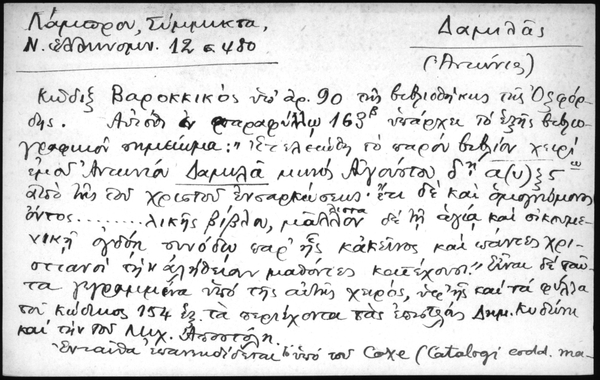 Λάμπρου, Σύμμικτα,
Ν. Ἑλληνομν. 12 σ. 480
Δαμιλᾶς
(Ἀντώνιος)
Κῶδιξ Βαροκκικὸς ὑπ' ἀρ. 90 τῆς βιβλιοθήκης τῆς Ὀξφόρ-
δης. Αὐτόθι ἐν παραφύλλῳ 163β ὑπάρχει τὸ ἑξῆς βιβλιο-
γραφικὸν σημείωμα: "Ἐτελειώθη τὸ παρὸν βιβλίον χειρὶ
ἐμοῦ Ἀντωνίου Δαμιλᾶ μηνὸς Αὐγούστου α(υ)ξς
ἀπὸ τῆς τοῦ Χριστοῦ ἐνσαρκώσεως· ἔτι δὲ καὶ
ὄντος ........ λικῆς βίβλου, μάλιστα δὲ τῇ ἁγίᾳ καὶ οἰκουμε-
νικῇ ὀγδόῃ συνόδῳ παρ' ἧς κἀκεῖνος καὶ πάντες χρι-
στιανοὶ τὴν ἀλήθειαν μαθόντες κατέχουσι." Εἶναι δὲ ταῦ-
τα γεγραμμένα ὑπὸ τῆς αὐτῆς χειρός, ὑφ' ἧς καὶ τὰ φύλλα
τοῦ κώδικος 154 ἑξ. τὰ περιέχοντα τὰς ἐπιστολὰς Δημ. Κυδώνη
καὶ τὴν τοῦ Μιχ. Ἀποστόλη.
Ἐνταῦθα ἐπαναδίδεται ὑπὸ τοῦ Coxe (Catalogi codd. ma-